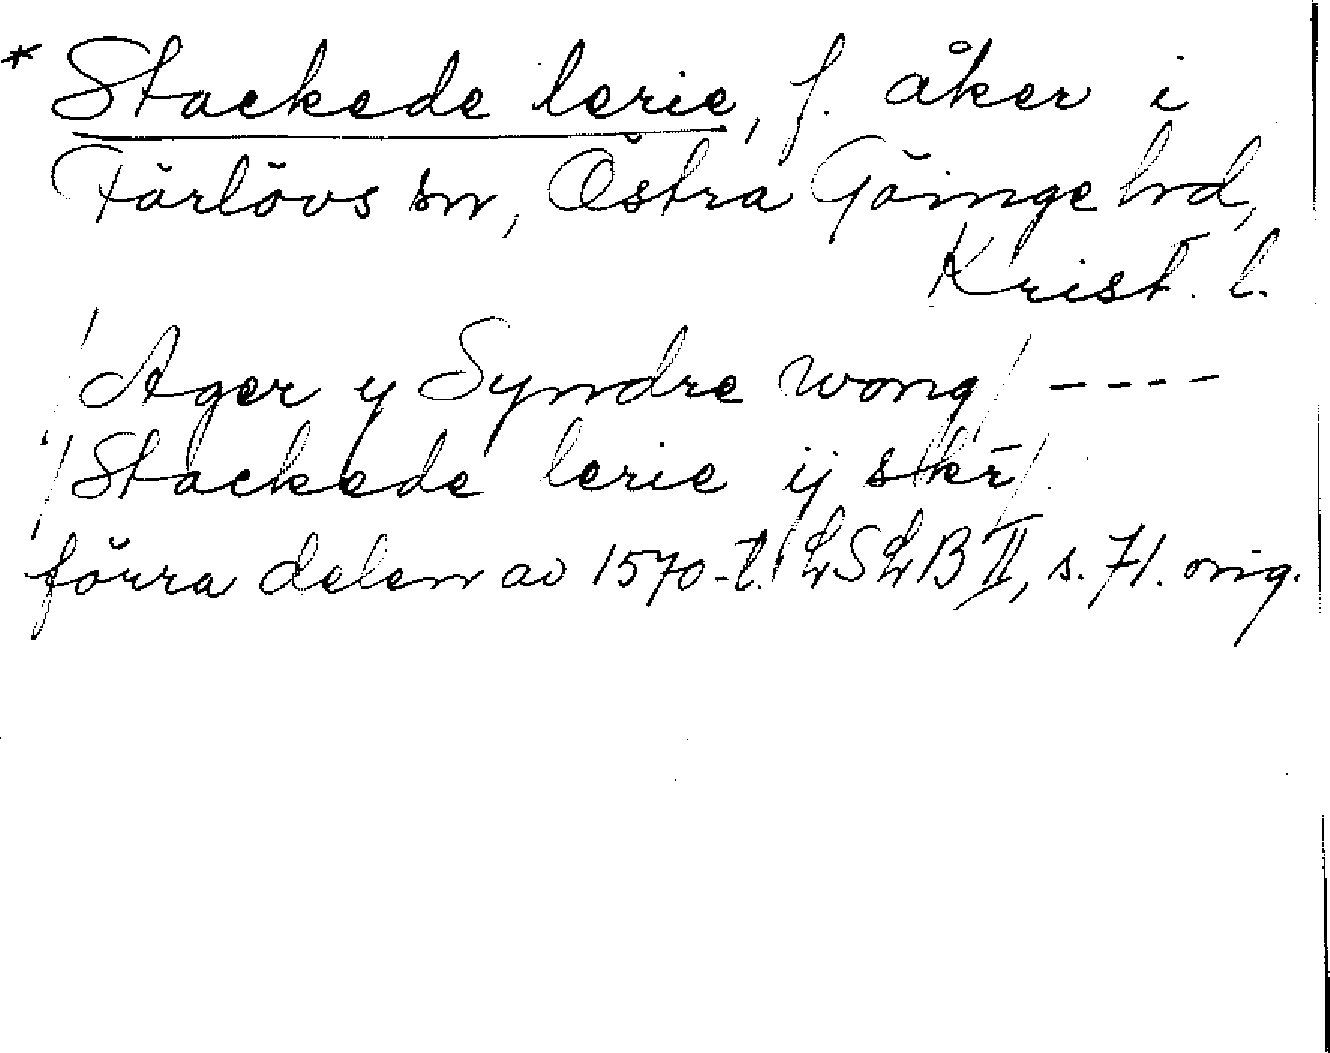 * Stackede lerie, f. åker i
Färlövs sn, Östra Göinge hd,
Krist. l.
/Ager y Syndre wong/ ----
/Stackede lerie ij skr̄/
förra delen av 1570-t. LSLB II, s. 71. orig.